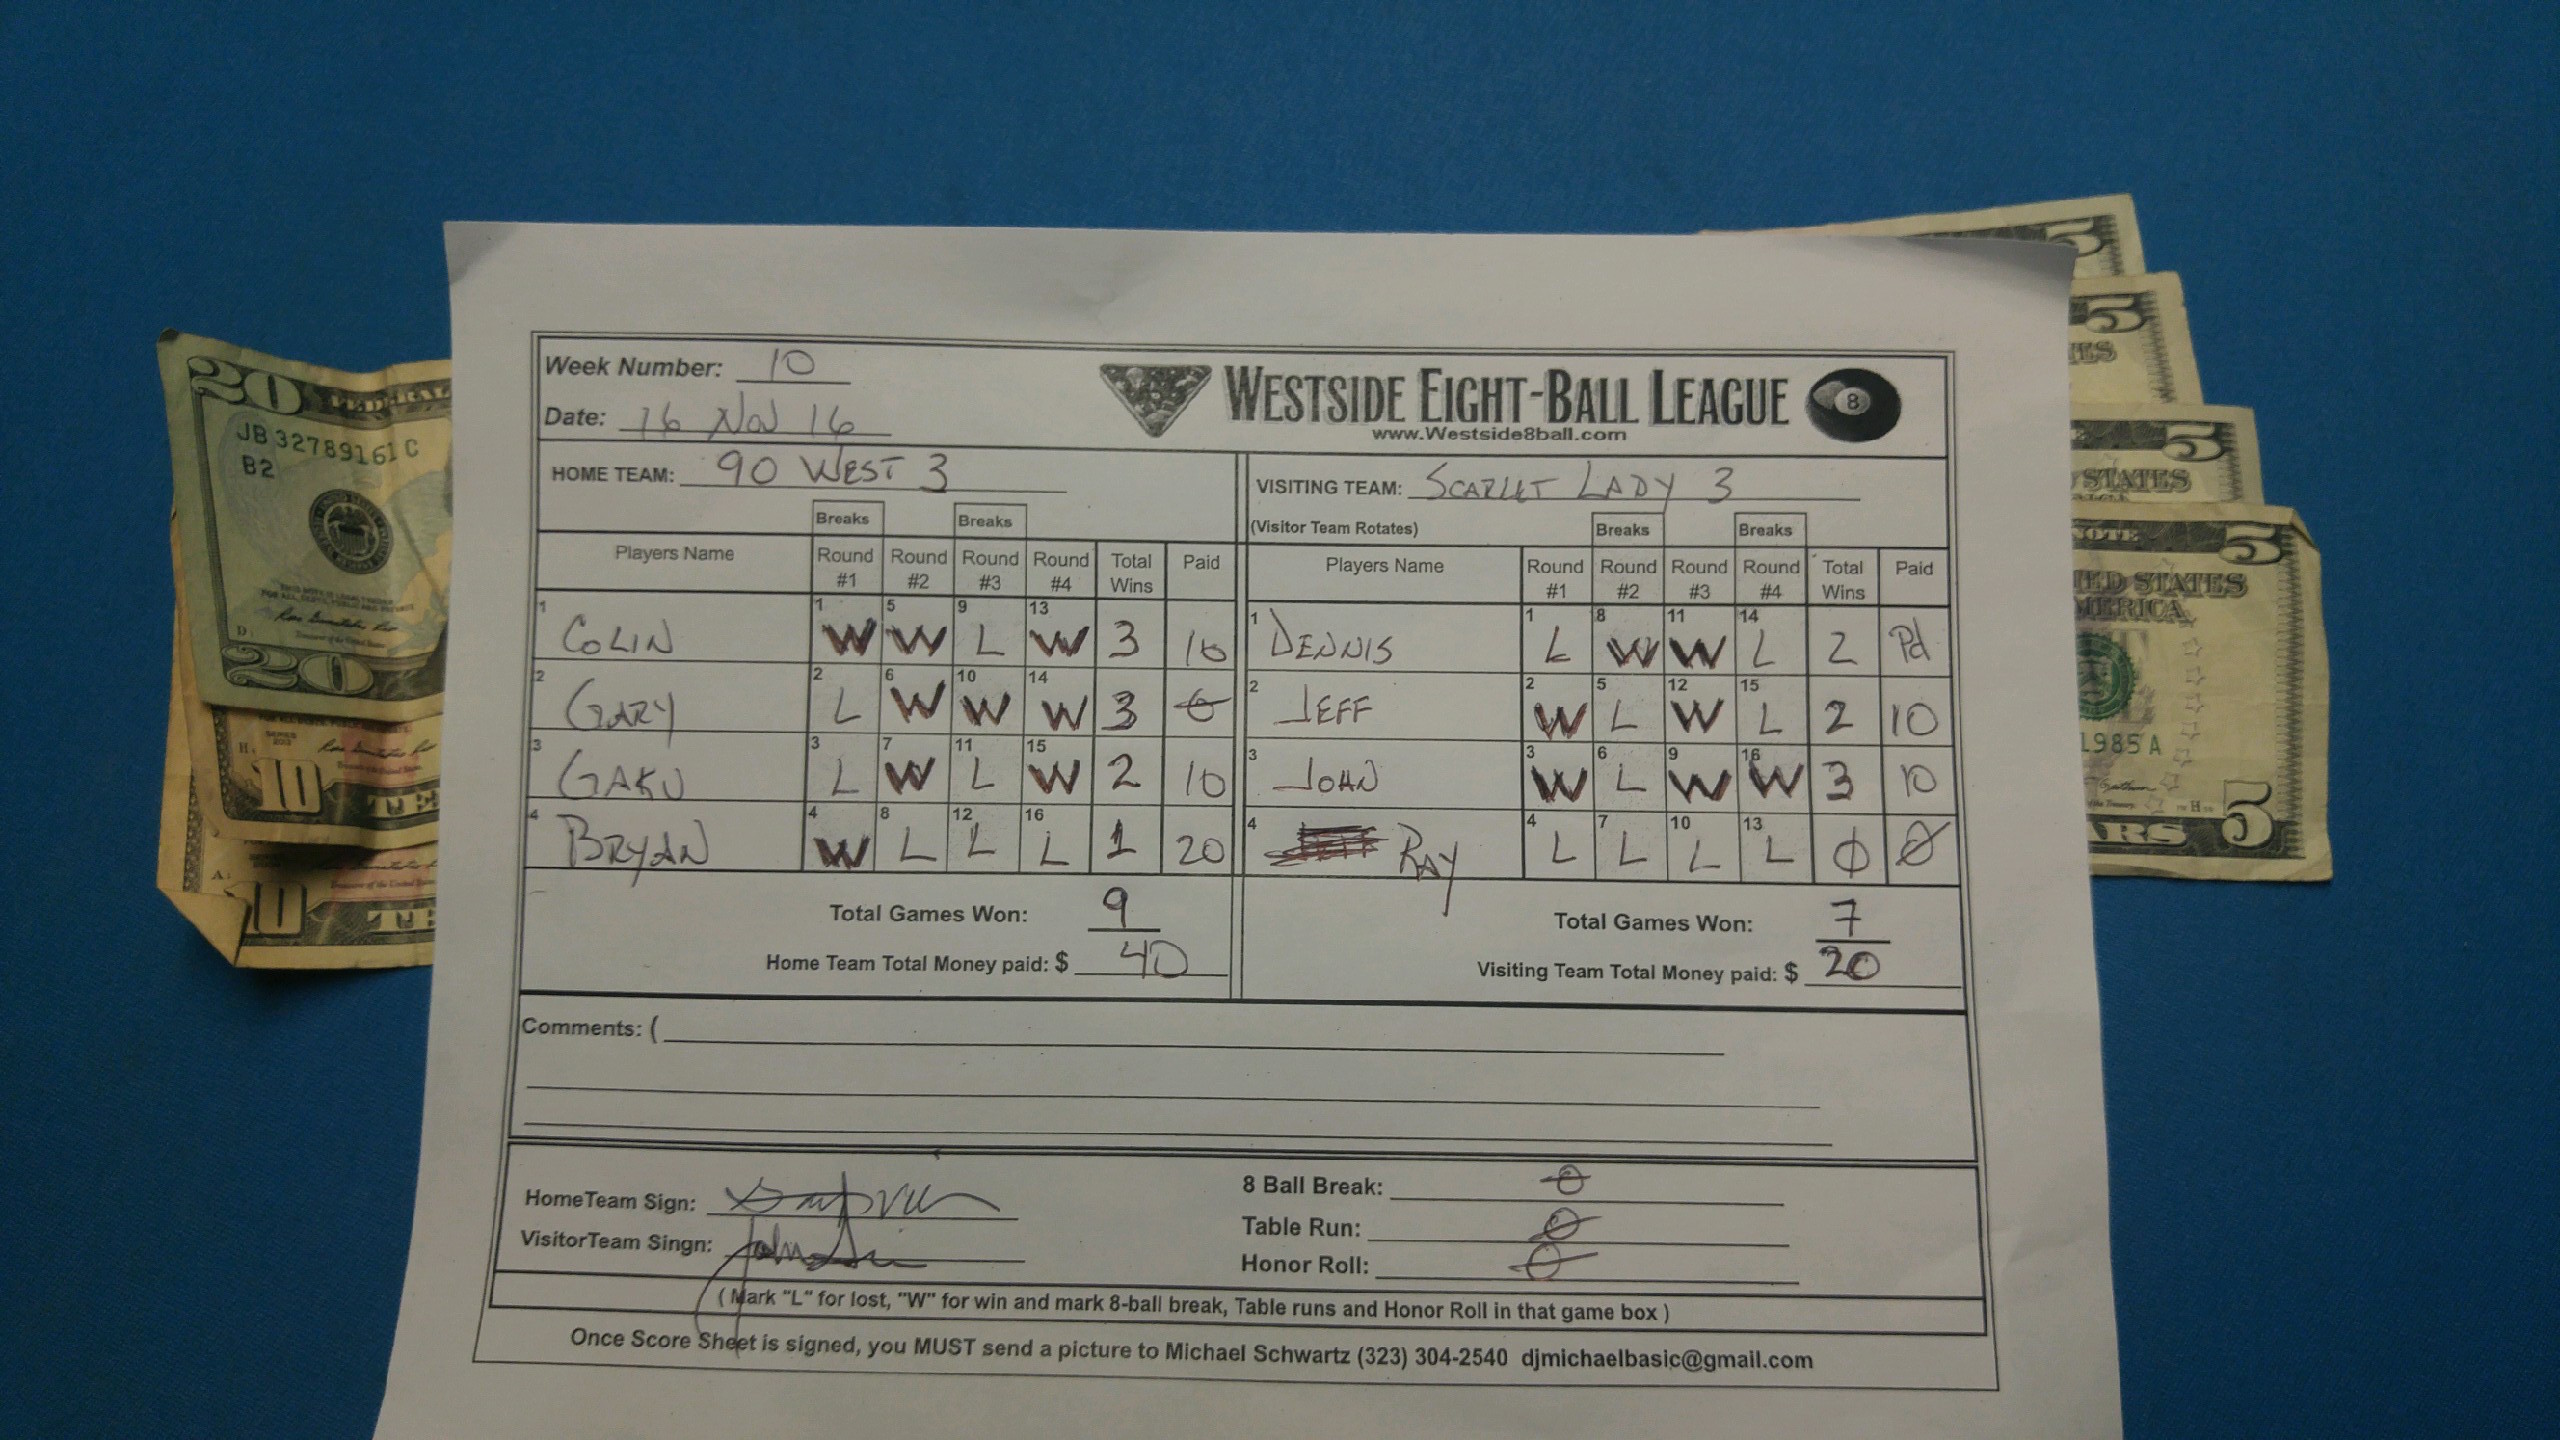 Week Number: 10
Date: 16 Nov 16
WESTSIDE EIGHT-BALL LEAGUE 8
www.Westside8ball.com
HOME TEAM: 90 WEST 3
VISITING TEAM: SCARLET LADY 3
(Visitor Team Rotates)
Breaks Breaks
Breaks Breaks
Players Name Round #1 Round #2 Round #3 Round #4 Total Wins Paid
1 COLIN 1 W 5 W 9 L 13 W 3 10
2 GARY 2 L 6 W 10 W 14 W 3 0
3 GAKU 3 L 7 W 11 L 15 W 2 10
4 BRYAN 4 W 8 L 12 L 16 L 1 20
Total Games Won: 9
Home Team Total Money paid: $ 40
Players Name Round #1 Round #2 Round #3 Round #4 Total Wins Paid
1 DENNIS 1 L 8 W 11 W 14 L 2 Pd
2 JEFF 2 W 5 L 12 W 15 L 2 10
3 JOHN 3 W 6 L 9 W 16 W 3 10
4 RAY 4 L 7 L 10 L 13 L 0 0
Total Games Won: 7
Visiting Team Total Money paid: $ 20
Comments: (
HomeTeam Sign:
VisitorTeam Singn:
8 Ball Break: 0
Table Run: 0
Honor Roll: 0
( Mark "L" for lost, "W" for win and mark 8-ball break, Table runs and Honor Roll in that game box )
Once Score Sheet is signed, you MUST send a picture to Michael Schwartz (323) 304-2540 djmichaelbasic@gmail.com
20 FEDERAL
JB 32789161 C
B2
20
10 TE
10 TE
5
5
TES
5
STATES
NOTE 5
ED STATES
MERICA
1985 A
ARS 5